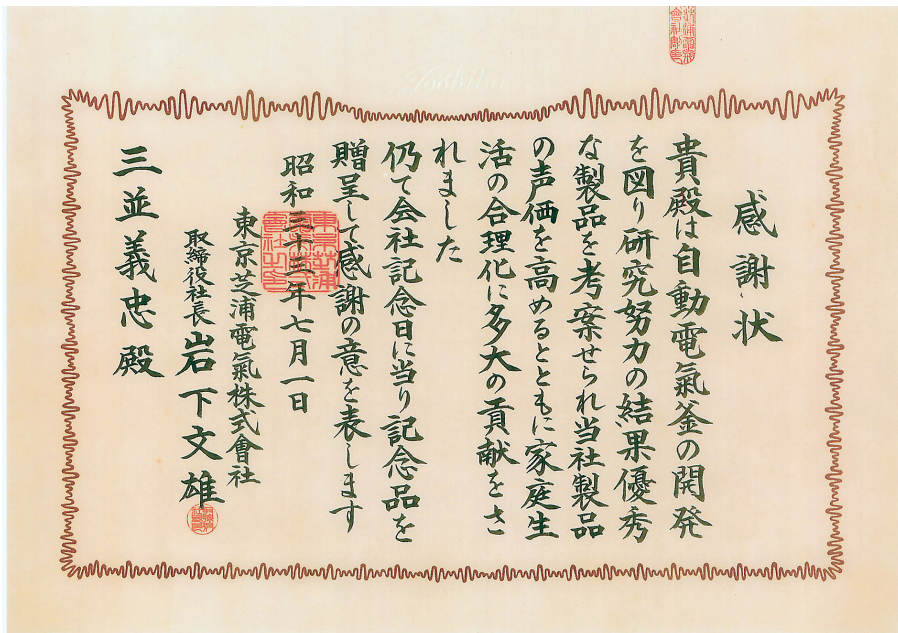 感謝状
貴殿は自動電氣釜の開発
を図り研究努力の結果優秀
な製品を考案せられ当社製品
の声価を高めるとともに家庭生
活の合理化に多大の貢献をさ
れました
仍て会社記念日に当り記念品を
贈呈して感謝の意を表します
昭和三十三年七月一日
東京芝浦電氣株式會社
取締役社長 岩下文雄
三並義忠殿
Toshiba